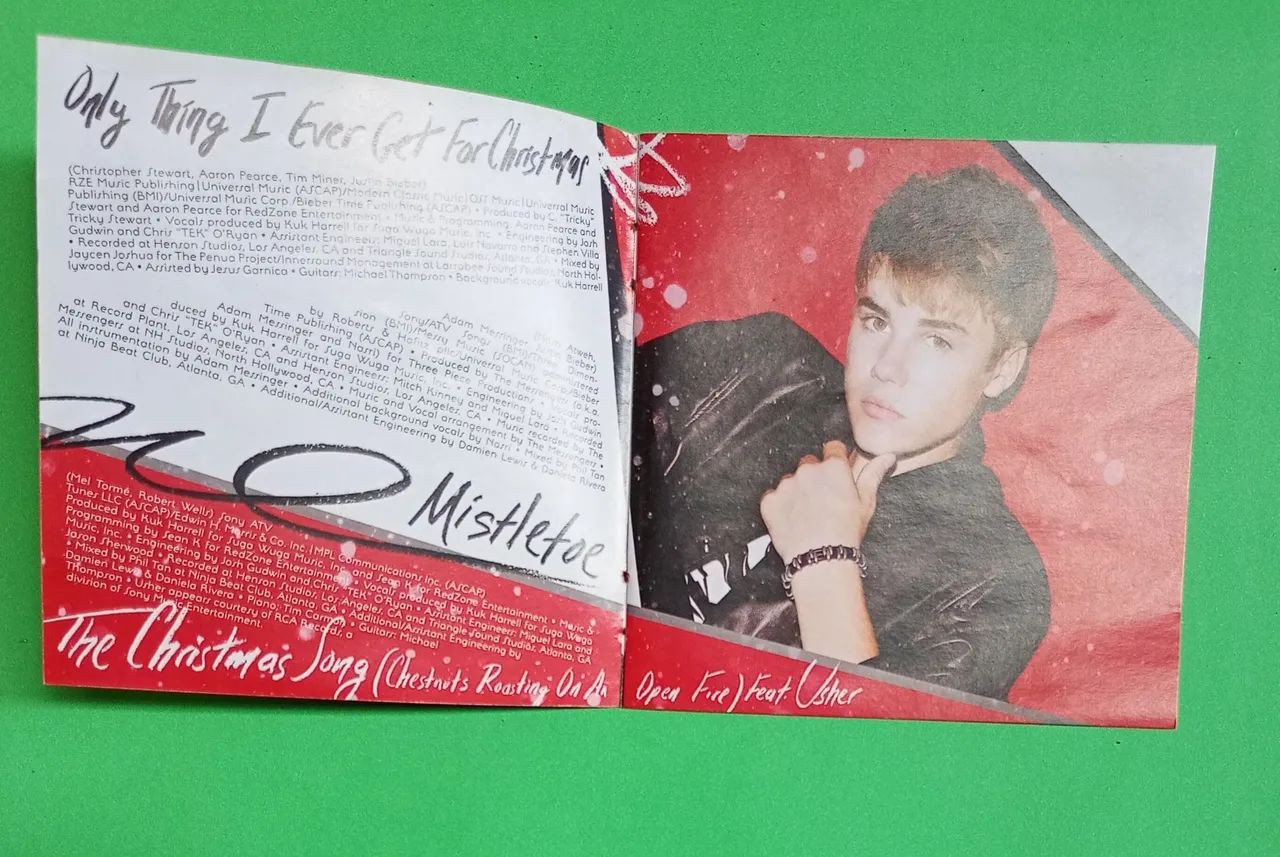 Only Thing I Ever Get For Christmas
(Christopher Stewart, Aaron Pearce, Tim Miner, Justin Bieber)
RZE Music Publishing|Universal Music (ASCAP)/Modern Classic Music|OSI Music|Universal Music
Publishing (BMI)/Universal Music Corp./Bieber Time Publishing (ASCAP) • Produced by C. "Tricky"
Stewart and Aaron Pearce for RedZone Entertainment • Music & Programming: Aaron Pearce and
Tricky Stewart • Vocals produced by Kuk Harrell for Suga Wuga Music, Inc. • Engineering by Josh
Gudwin and Chris "TEK" O'Ryan • Assistant Engineers: Miguel Lara, Luis Navarro and Stephen Villa
• Recorded at Henson Studios, Los Angeles, CA and Triangle Sound Studios, Atlanta, GA • Mixed by
Jaycen Joshua for The Penua Project/Innersound Management at Larrabee Sound Studios, North Hol-
lywood, CA • Assisted by Jesus Garnica • Guitars: Michael Thompson • Background vocals: Kuk Harrell
Adam Messinger, Justin Bieber)
Sony/ATV Songs (BMI)/Three Dimen-
sion (BMI)/Messy Music (SOCAN) administered
by Roberts & Hafitz
Time Publishing (ASCAP) • Produced by The Messengers
Adam Messinger and Nasri) for Three Piece Productions • Vocals pro-
duced by Kuk Harrell for Suga Wuga Music, Inc. • Engineering by Josh Gudwin
and Chris "TEK" O'Ryan • Assistant Engineers: Mitch Kenney and Miguel Lara • Recorded
at Record Plant, Los Angeles, CA and Henson Studios, Los Angeles, CA • Music recorded by The
Messengers at NH Studios, North Hollywood, CA • Music and Vocal arrangement by The Messengers •
All instrumentation by Adam Messinger • Additional background vocals by Nasri • Mixed by Phil Tan
at Ninja Beat Club, Atlanta, GA • Additional/Assistant Engineering by Damien Lewis & Daniela Rivera
Mistletoe
(Mel Tormé, Robert Wells) Sony ATV
Tunes LLC (ASCAP)/Edwin H. Morris & Co. Inc. | MPL Communications Inc. (ASCAP)
Produced by Kuk Harrell for Suga Wuga Music, Inc. and Sean K for RedZone Entertainment • Music &
Programming by Sean K for RedZone Entertainment • Vocals produced by Kuk Harrell for Suga Wuga
Music, Inc. • Engineering by Josh Gudwin and Chris "TEK" O'Ryan • Assistant Engineers: Miguel Lara and
Jason Sherwood • Recorded at Henson Studios, Los Angeles, CA and Triangle Sound Studios, Atlanta, GA
• Mixed by Phil Tan at Ninja Beat Club, Atlanta, GA • Additional/Assistant Engineering by
Damien Lewis & Daniela Rivera • Piano: Tim Carmon • Guitars: Michael
Thompson • Usher appears courtesy of RCA Records, a
division of Sony Music Entertainment.
The Christmas Song (Chestnuts Roasting On An Open Fire) feat. Usher